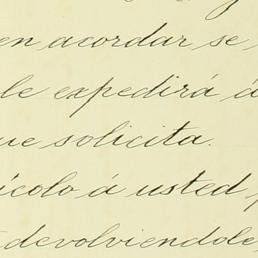 en acordar se
le expedirá á
ue solicita.
ícolo á usted
devolviendole,